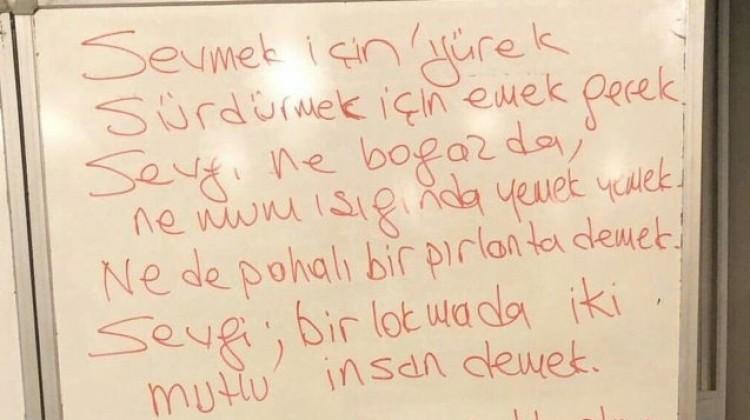 Sevmek için yürek
Sürdürmek için emek gerek.
Sevgi ne boğazda,
ne mum ışığında yemek yemek.
Ne de pahalı bir pırlanta demek.
Sevgi; bir lokmada iki
mutlu insan demek.